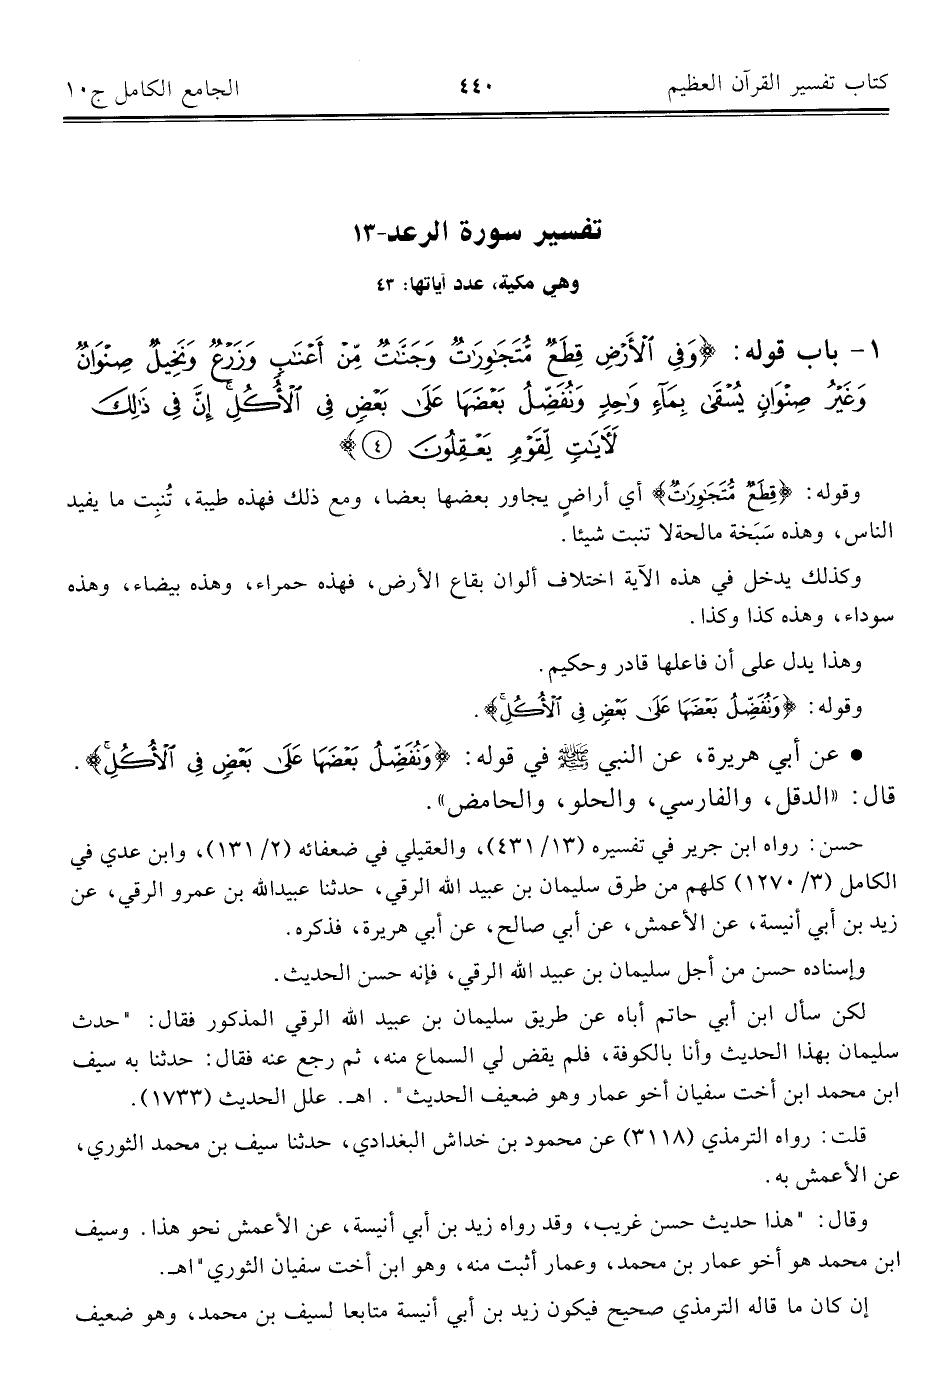 كتاب تفسير القرآن العظيم ٤٤٠ الجامع الكامل ج١٠
تفسير سورة الرعد-١٣
وهي مكية، عدد آياتها: ٤٣
١- باب قوله: ﴿وَفِي ٱلۡأَرۡضِ قِطَعٞ مُّتَجَٰوِرَٰتٞ وَجَنَّٰتٞ مِّنۡ أَعۡنَٰبٖ وَزَرۡعٞ وَنَخِيلٞ صِنۡوَانٞ
وَغَيۡرُ صِنۡوَانٖ يُسۡقَىٰ بِمَآءٖ وَٰحِدٖ وَنُفَضِّلُ بَعۡضَهَا عَلَىٰ بَعۡضٖ فِي ٱلۡأُكُلِۚ إِنَّ فِي ذَٰلِكَ
لَأٓيَٰتٖ لِّقَوۡمٖ يَعۡقِلُونَ ٤﴾
وقوله: ﴿قِطَعٞ مُّتَجَٰوِرَٰتٞ﴾ أي أراضٍ يجاور بعضها بعضا، ومع ذلك فهذه طيبة، تُنبِت ما يفيد
الناس، وهذه سَبَخة مالحةلا تنبت شيئا.
وكذلك يدخل في هذه الآية اختلاف ألوان بقاع الأرض، فهذه حمراء، وهذه بيضاء، وهذه
سوداء، وهذه كذا وكذا.
وهذا يدل على أن فاعلها قادر وحكيم.
وقوله: ﴿وَنُفَضِّلُ بَعۡضَهَا عَلَىٰ بَعۡضٖ فِي ٱلۡأُكُلِۚ﴾.
• عن أبي هريرة، عن النبي ﷺ في قوله: ﴿وَنُفَضِّلُ بَعۡضَهَا عَلَىٰ بَعۡضٖ فِي ٱلۡأُكُلِۚ﴾.
قال: «الدقل، والفارسي، والحلو، والحامض».
حسن: رواه ابن جرير في تفسيره (١٣/ ٤٣١)، والعقيلي في ضعفائه (٢/ ١٣١)، وابن عدي في
الكامل (٣/ ١٢٧٠) كلهم من طرق سليمان بن عبيد الله الرقي، حدثنا عبيدالله بن عمرو الرقي، عن
زيد بن أبي أنيسة، عن الأعمش، عن أبي صالح، عن أبي هريرة، فذكره.
وإسناده حسن من أجل سليمان بن عبيد الله الرقي، فإنه حسن الحديث.
لكن سأل ابن أبي حاتم أباه عن طريق سليمان بن عبيد الله الرقي المذكور فقال: "حدث
سليمان بهذا الحديث وأنا بالكوفة، فلم يقض لي السماع منه، ثم رجع عنه فقال: حدثنا به سيف
ابن محمد ابن أخت سفيان أخو عمار وهو ضعيف الحديث". اهـ. علل الحديث (١٧٣٣).
قلت: رواه الترمذي (٣١١٨) عن محمود بن خداش البغدادي، حدثنا سيف بن محمد الثوري،
عن الأعمش به.
وقال: "هذا حديث حسن غريب، وقد رواه زيد بن أبي أنيسة، عن الأعمش نحو هذا. وسيف
ابن محمد هو أخو عمار بن محمد، وعمار أثبت منه، وهو ابن أخت سفيان الثوري"اهـ.
إن كان ما قاله الترمذي صحيح فيكون زيد بن أبي أنيسة متابعا لسيف بن محمد، وهو ضعيف